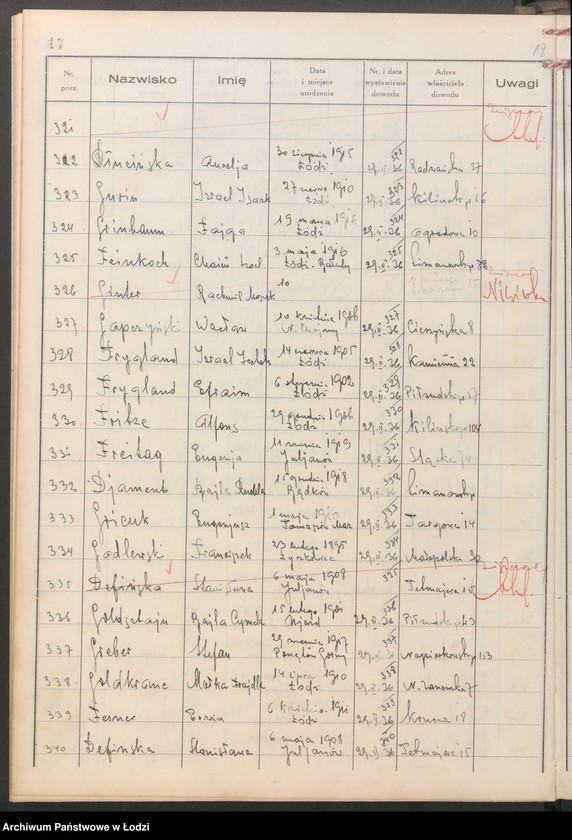 17
18
Nr. porz. Nazwisko Imię Data i miejsce urodzenia Nr. i data wystawienia dowodu Adres właściciela dowodu Uwagi
321
322 Aurelja 30 sierpnia 1915 Łódź 322 29.II.36 Radwańska 57
323 Gurin Izrael Izaak 27 1910 Łódź 323 29.II.36 Kilińskiego 16
324 Grinbaum Fajga 19 marca 1916 Łódź 324 29.II.36 Ogrodowa 10
325 Feinkoch Chaim Icel 3 maja 1916 Łódź-Bałuty 325 29.II.36 Limanowskiego 88
326 Ginter Rachmil Moszek 10
327 Gapczyński Wacław 10 kwietnia 1906 N. Chojny 327 29.II.36 Cieszyńska 8
328 Frygland Izrael 14 czerwca 1905 Łódź 328 29.II.36 Kamienna 22
329 Frygland Efraim 6 1902 Łódź 329 29.II.36 Piłsudskiego 57
330 Fritze Alfons 29 grudnia 1906 Łódź 330 29.II.36 Kilińskiego 104
331 Freitag Eugenja 11 1919 Juljanów 331 29.II.36 Śląska 74
332 Djament Szajla 15 grudnia 1918 332 29.II.36 Limanowskiego
333 Gricuk Eugenjusz 1 maja 1910 Tomaszów Maz 333 29.II.36 Targowa 14
334 Godlewski Franciszek 23 lutego 1895 334 29.II.36 Małopolska 30
335 Defińska Stanisława 6 maja 1908 Juljanów 335 Tetmajera 15
336 Goldsztajn Rajla Cymela 15 lutego 1901 Ujazd 336 29.II.36 Piłsudskiego 43
337 Greber Stefan 29 1917 337 29.II.36 Napiórkowskiego 113
338 Goldkranc Małka Frajdla 14 lipca 1910 Łódź 338 29.II.36 N. Zarzewska 7
339 Ferner Erwin 6 1911 Łódź 339 29.II.36 Krucza 18
340 Defińska Stanisława 6 maja 1908 Juljanów 340 29.II.36 Tetmajera 15
Archiwum Państwowe w Łodzi